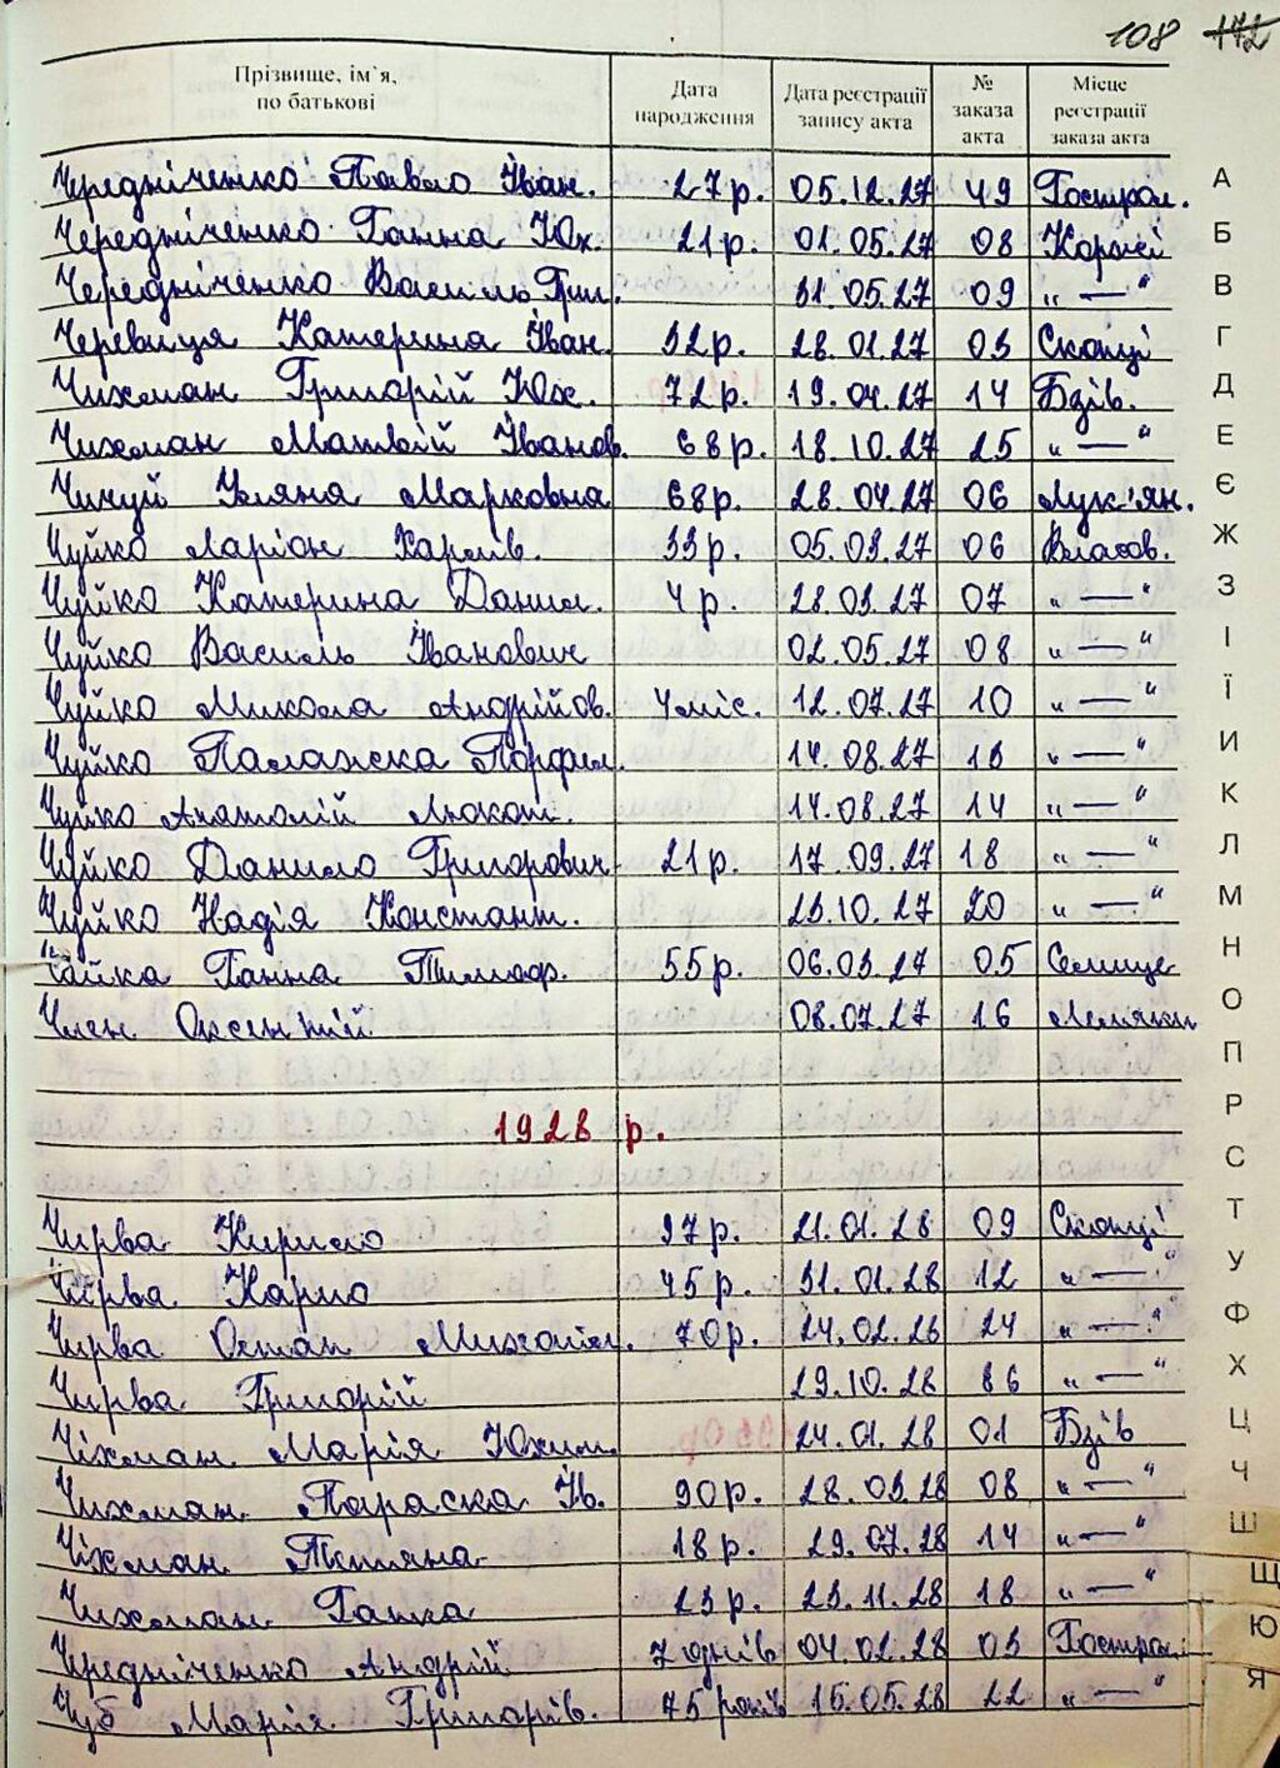 108 172
Прізвище, ім`я, по батькові Дата народження Дата реєстрації запису акта № заказа акта Місце реєстрації заказа акта
Чередніченко Павло Іван. 27р. 05.12.27 49 Гостром. А
Чередніченко Ганна Юх. 21р. 01.05.27 08 Коржі Б
Чередніченко Василь Григ. 31.05.27 09 „—“ В
Черевиця Катерина Іван. 32р. 28.01.27 03 Скопці Г
Чихман Григорій Юх. 72р. 19.04.27 14 Бзів. Д
Чихман Матвій Іванов. 68р. 18.10.27 25 „—“ Е
Уляна Марковна 68р. 28.04.27 06 Лук'ян. Є
Чуйко Ларіон Харлів. 33р. 05.03.27 06 Власов. Ж
Чуйко Катерина Данил. 4р. 28.03.27 07 „—“ З
Чуйко Василь Іванович 02.05.27 08 „—“ І
Чуйко Микола Андрійов. 4міс. 12.07.27 10 „—“ Ї
Чуйко Палажка Порфил. 14.08.27 13 „—“ И
Чуйко Анатолій 14.08.27 14 „—“ К
Чуйко Данило Григорович 21р. 17.09.27 18 „—“ Л
Чуйко Надія Констант. 23.10.27 20 „—“ М
Чайка Ганна Тимоф. 55р. 06.03.27 05 Селище Н
Член Оксентій 08.07.27 16 Лемяки О
П
1928 р. Р
С
Чирва Кирило 37р. 21.01.28 09 Скопці Т
Чирва Карпо 45р. 31.01.28 12 „—“ У
Чирва Остап Михайл. 70р. 24.02.28 24 „—“ Ф
Чирва Григорій 29.10.28 86 „—“ Х
Чіхман Марія Юхим. 24.01.28 01 Бзів Ц
Чихман Параска Ів. 90р. 28.03.28 08 „—“ Ч
Чіхман Тетяна 18р. 29.07.28 14 „—“ Ш
Чихман Ганна 23р. 23.11.28 18 „—“ Щ
Чередніченко Андрій 7 днів 04.02.28 03 Гостром. Ю
Чуб Марія Григорів. 75 років 15.05.28 22 „—“ Я